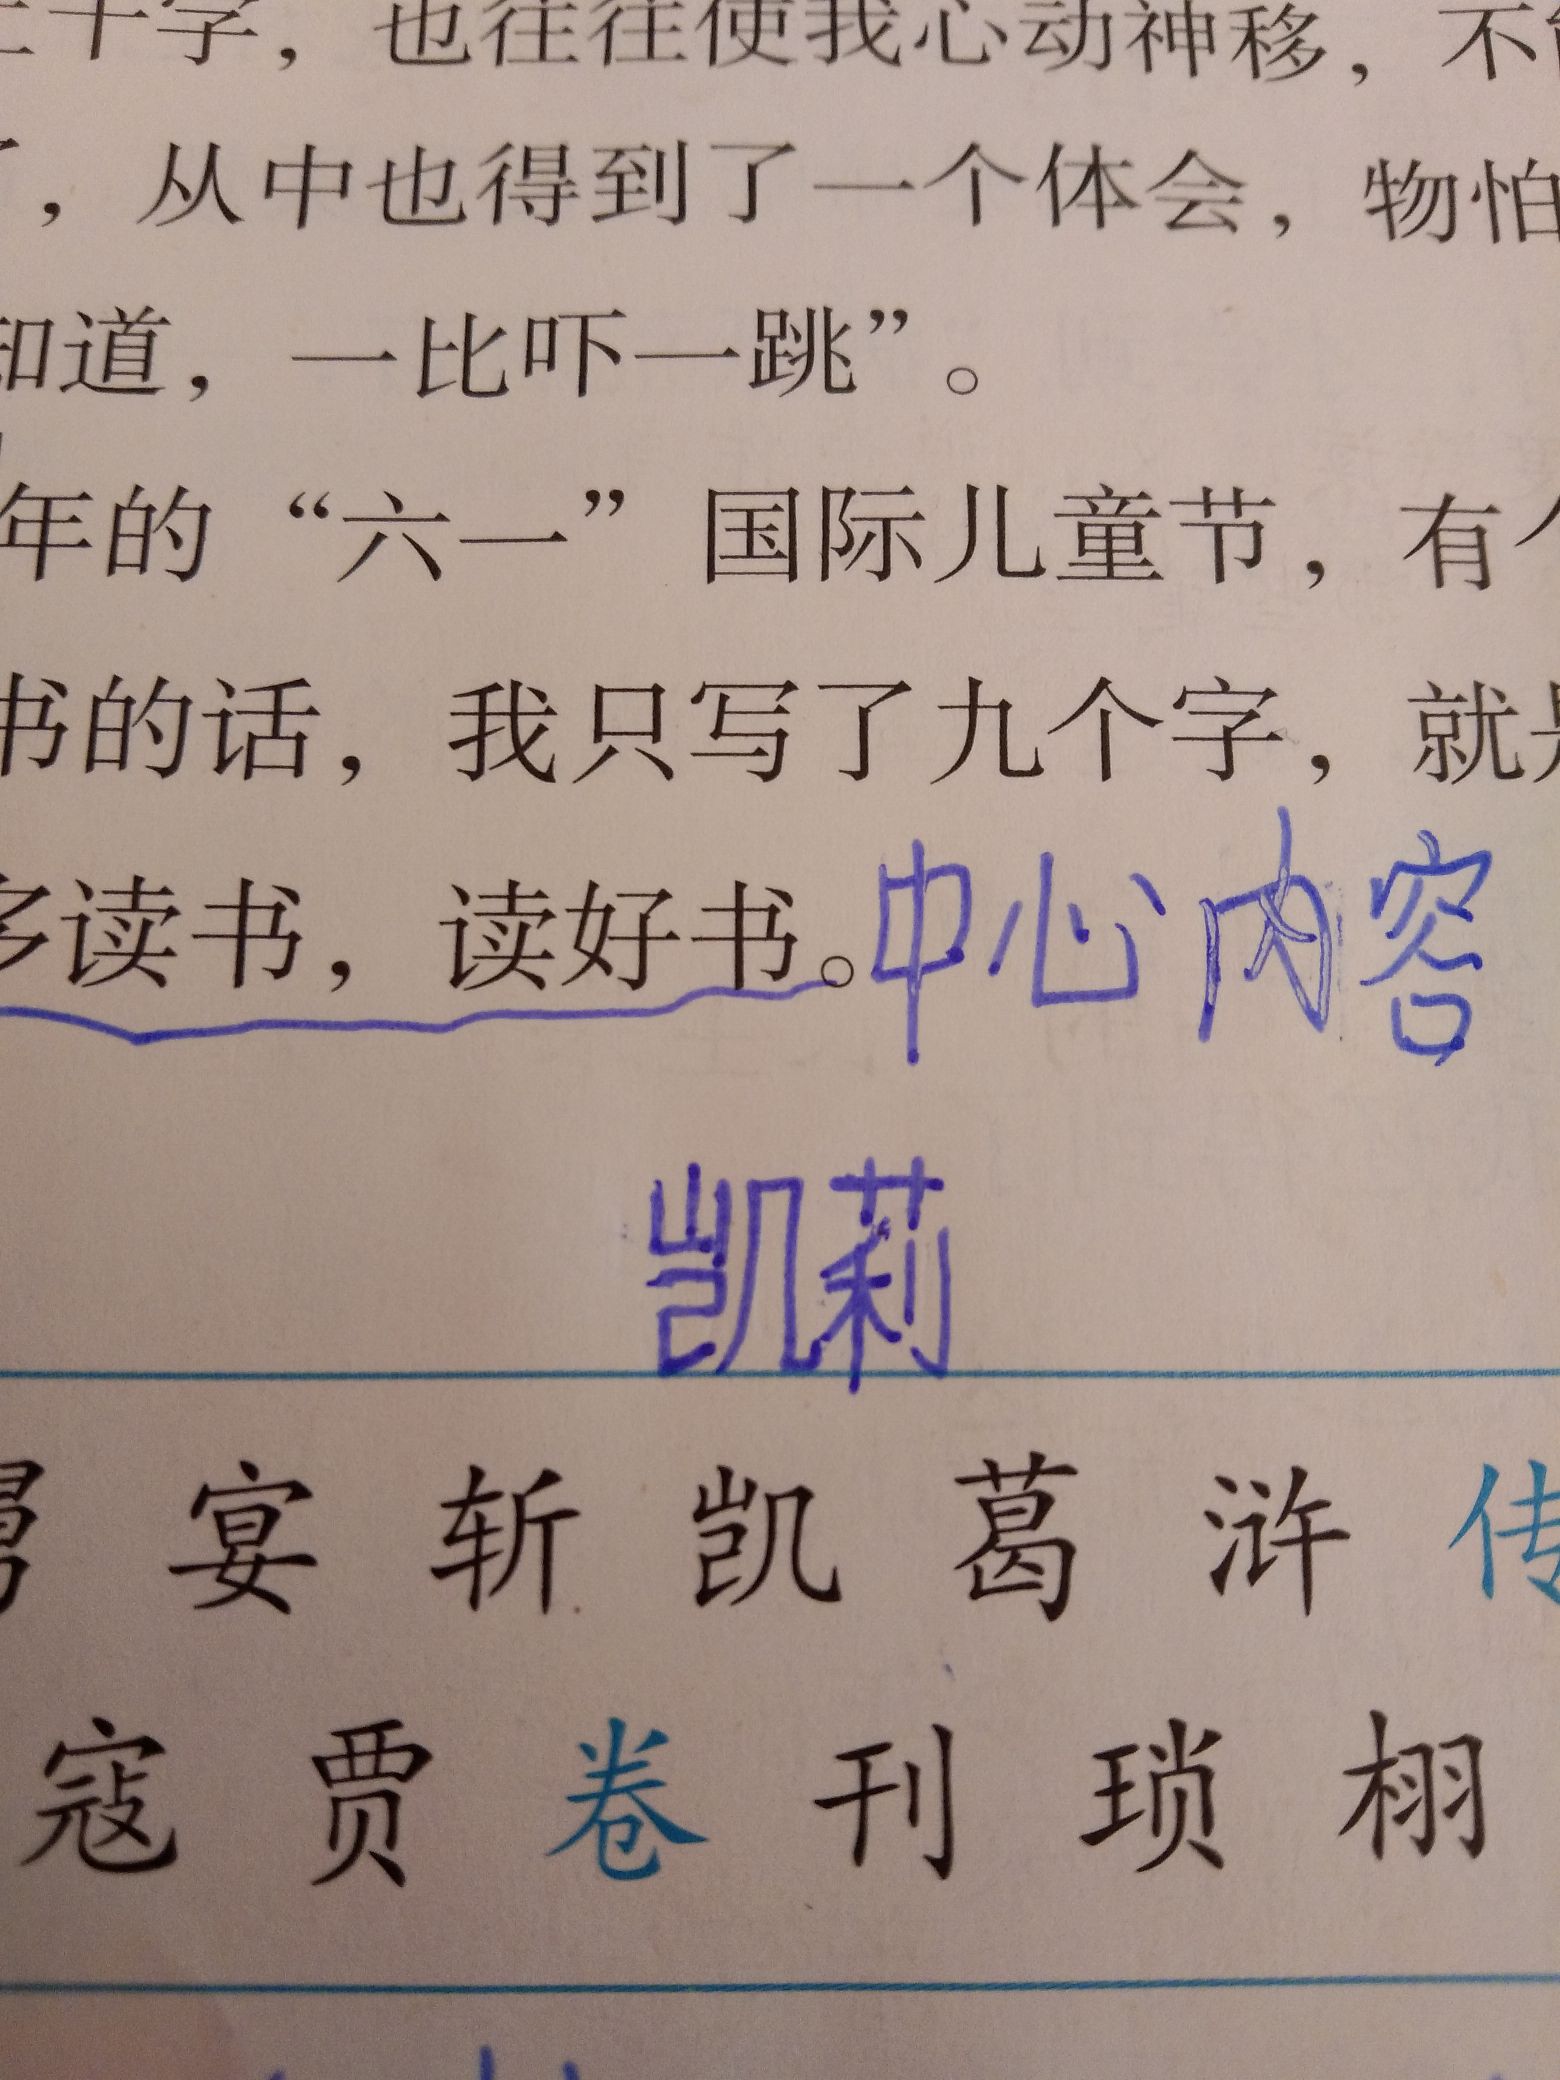 三十字，也往往使我心动神移，不能
了，从中也得到了一个体会，物怕
知道，一比吓一跳”。
年的“六一”国际儿童节，有个
书的话，我只写了九个字，就是
多读书，读好书。中心内容
凯莉
舅 宴 斩 凯 葛 浒 传
寇 贾 卷 刊 琐 栩